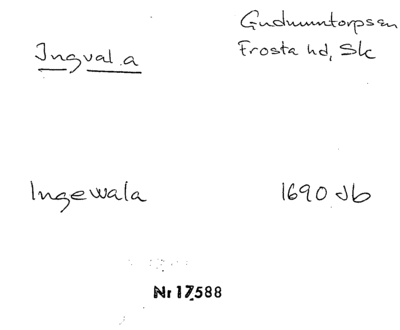 Ingvala
Gudmuntorpsen
Frosta hd, Sk
Ingewala
1690 db
Nr 17588